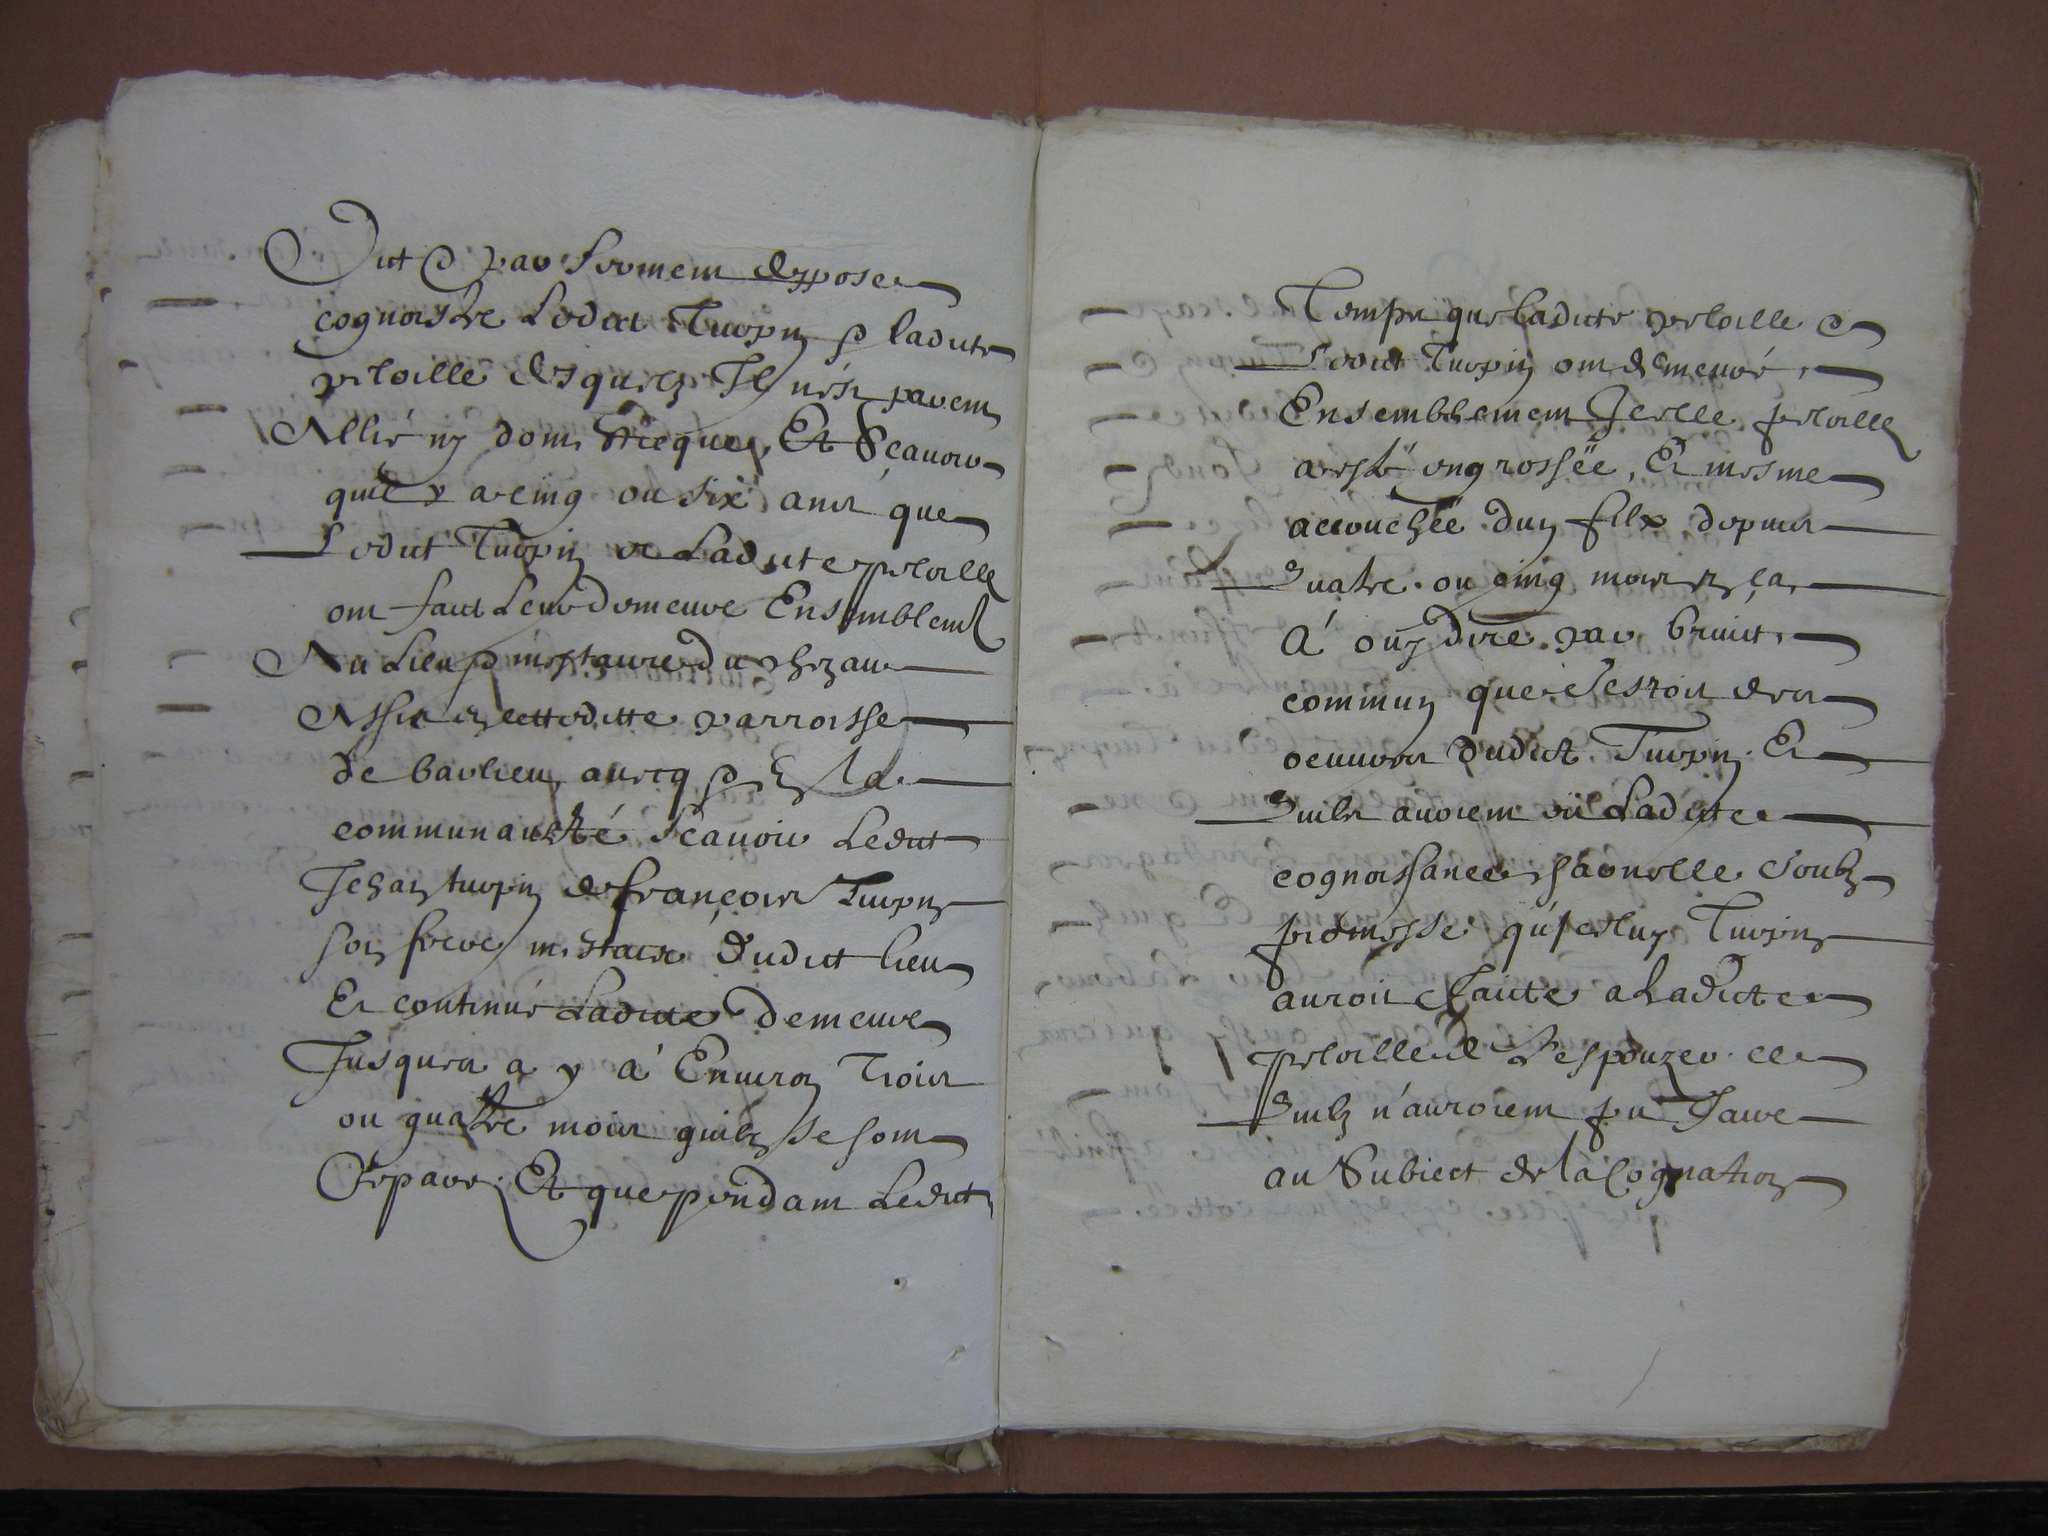 Dict & par serment deppose
cognoistre Ledict Turpin & ladicte
preloille desquelz Il n'est parent
Allié ny domesticque, Et Scauoir
quil y a cinq ou six ans que
Ledict Turpin et Ladicte preloille
ont faict Leur demeure Ensemblemt
Au Lieu & mestairie du
Assis en cetteditte parroisse
de barlieu, auecq & En La
communaulté scauoir Ledict
Jehan turpin et françois Turpin
son frere mestaier dudict lieu
Et continué Ladicte demeure
Jusques a y a Enuiron Trois
ou quatre mois quilz se sont
separe, Et que pendant Ledict
Temps que ladicte preloille &
Ledict Turpin ont demeuré
Ensemblement Icelle preloille
a esté engrossée, Et mesme
accouchée dun filz depuis
Quatre ou cinq mois en ça,
A ouy dire par bruict
commun que C'estoit des
oeuures dudict Turpin Et
Quilz auoient eü Ladicte
cognoissance charnelle Soubz
promesse qu'iceluy Turpin
auroit faicte a Ladicte
preloille de L'espouzer ce
Quilz n'auroient pu faire
au Subiect de la Cognation